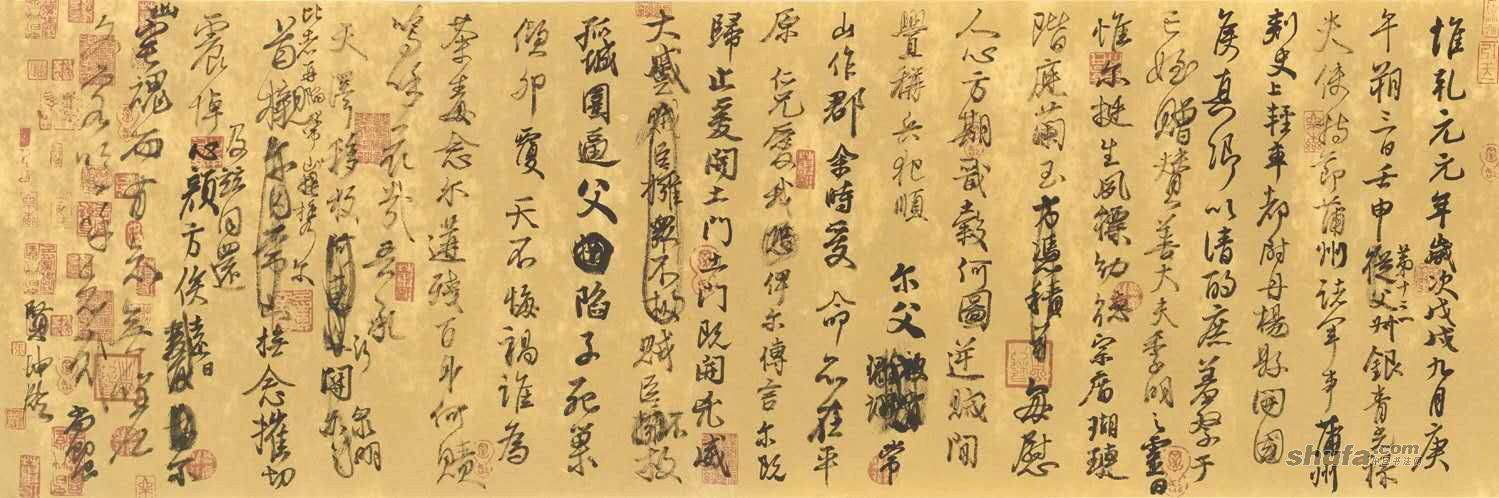 維乾元元年歲次戊戌九月庚
午朔三日壬申第十三從父銀青光祿
夫使持節蒲州諸軍事蒲州
刺史上輕車都尉丹楊縣開國
侯真卿以清酌庶羞祭于
亡姪贈贊善大夫季明之靈曰
惟爾挺生夙標幼德宗廟瑚璉
階庭蘭玉方憑積善每慰
人心方期戩穀何圖逆賊閒
釁稱兵犯順
爾父竭誠常
山作郡余時受命亦在平
原仁兄愛我俾爾傳言爾既
歸止爰開土門土門既開凶威
大蹙賊臣擁眾不救賊臣不救
孤城圍逼父陷子死巢
傾卵覆天不悔禍誰為
荼毒念爾遘殘百身何贖
嗚呼哀哉吾承
天澤移牧河關泉明
比者再陷常山攜爾
首櫬及茲同還撫念摧切
震悼心顏方俟遠日爾
幽宅魂而有知無嗟久
客嗚呼哀哉尚饗
shufa.com